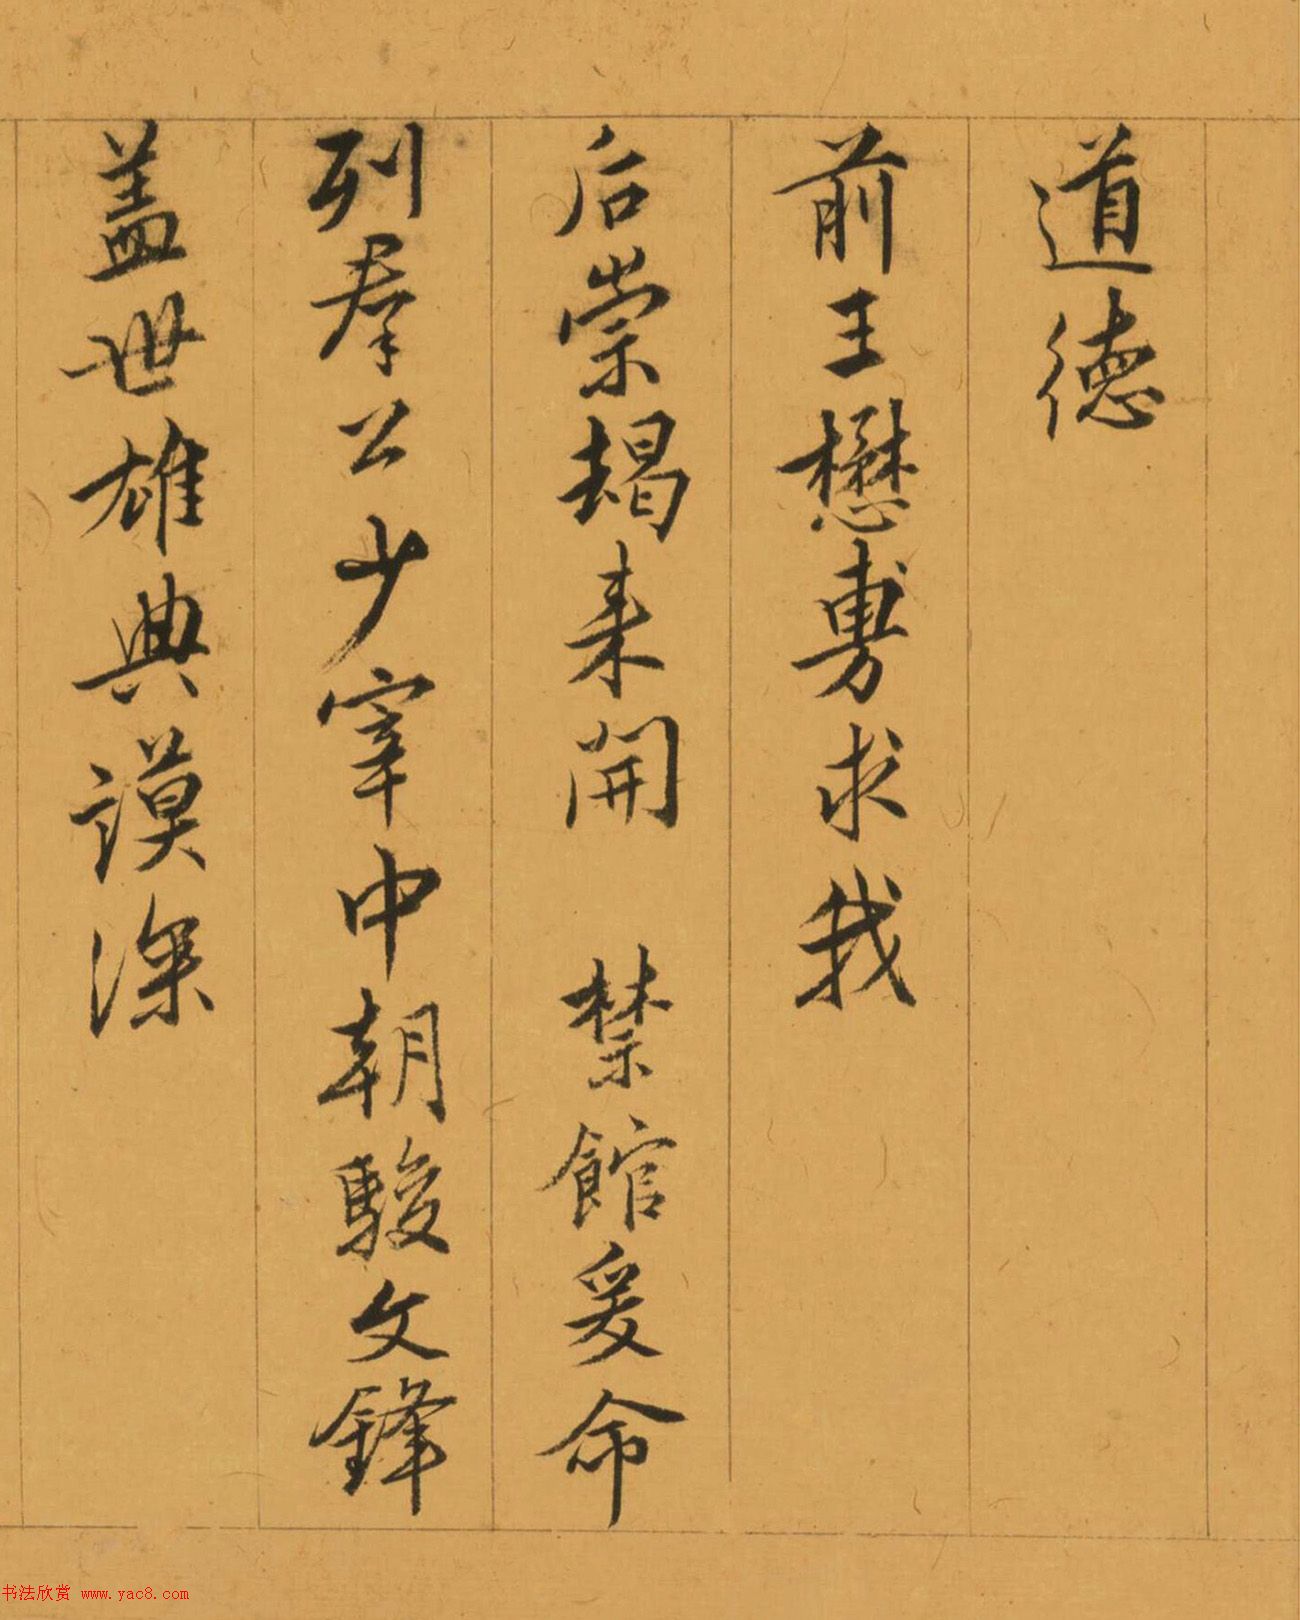 道德
前王懋旉求我
后崇朅来開　禁館爰命
列羣公少宰中朝駿文鋒
盖世雄典謨深
书法欣赏 www.yac8.com